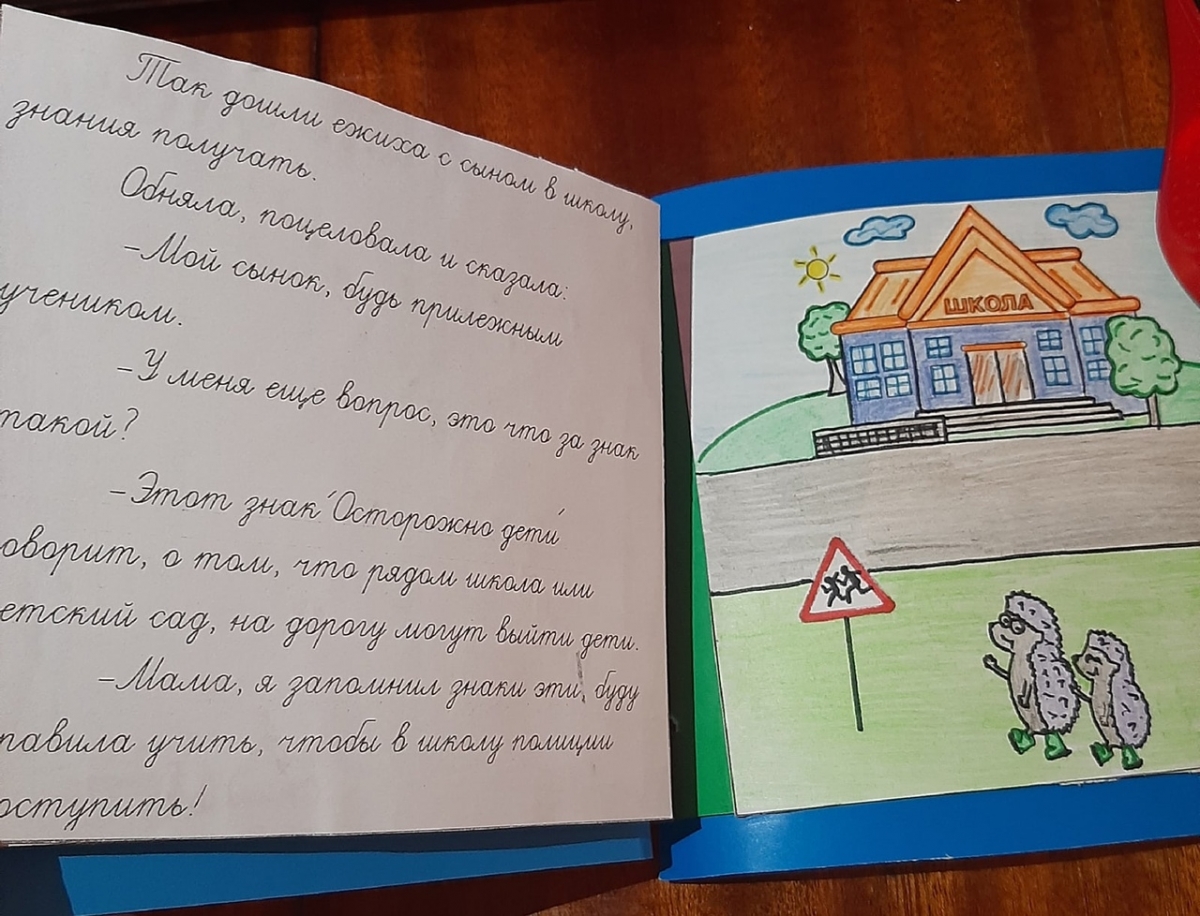 Так дошли ежиха с сыном в школу,
знания получать.
Обняла, поцеловала и сказала:
-Мой сынок, будь прилежным
учеником.
-У меня еще вопрос, это что за знак
такой?
-Этот знак "Осторожно дети"
оворит, о том, что рядом школа или
етский сад, на дорогу могут выйти дети.
-Мама, я запомнил знаки эти, буду
равила учить, чтобы в школу полиции
оступить!
ШКОЛА